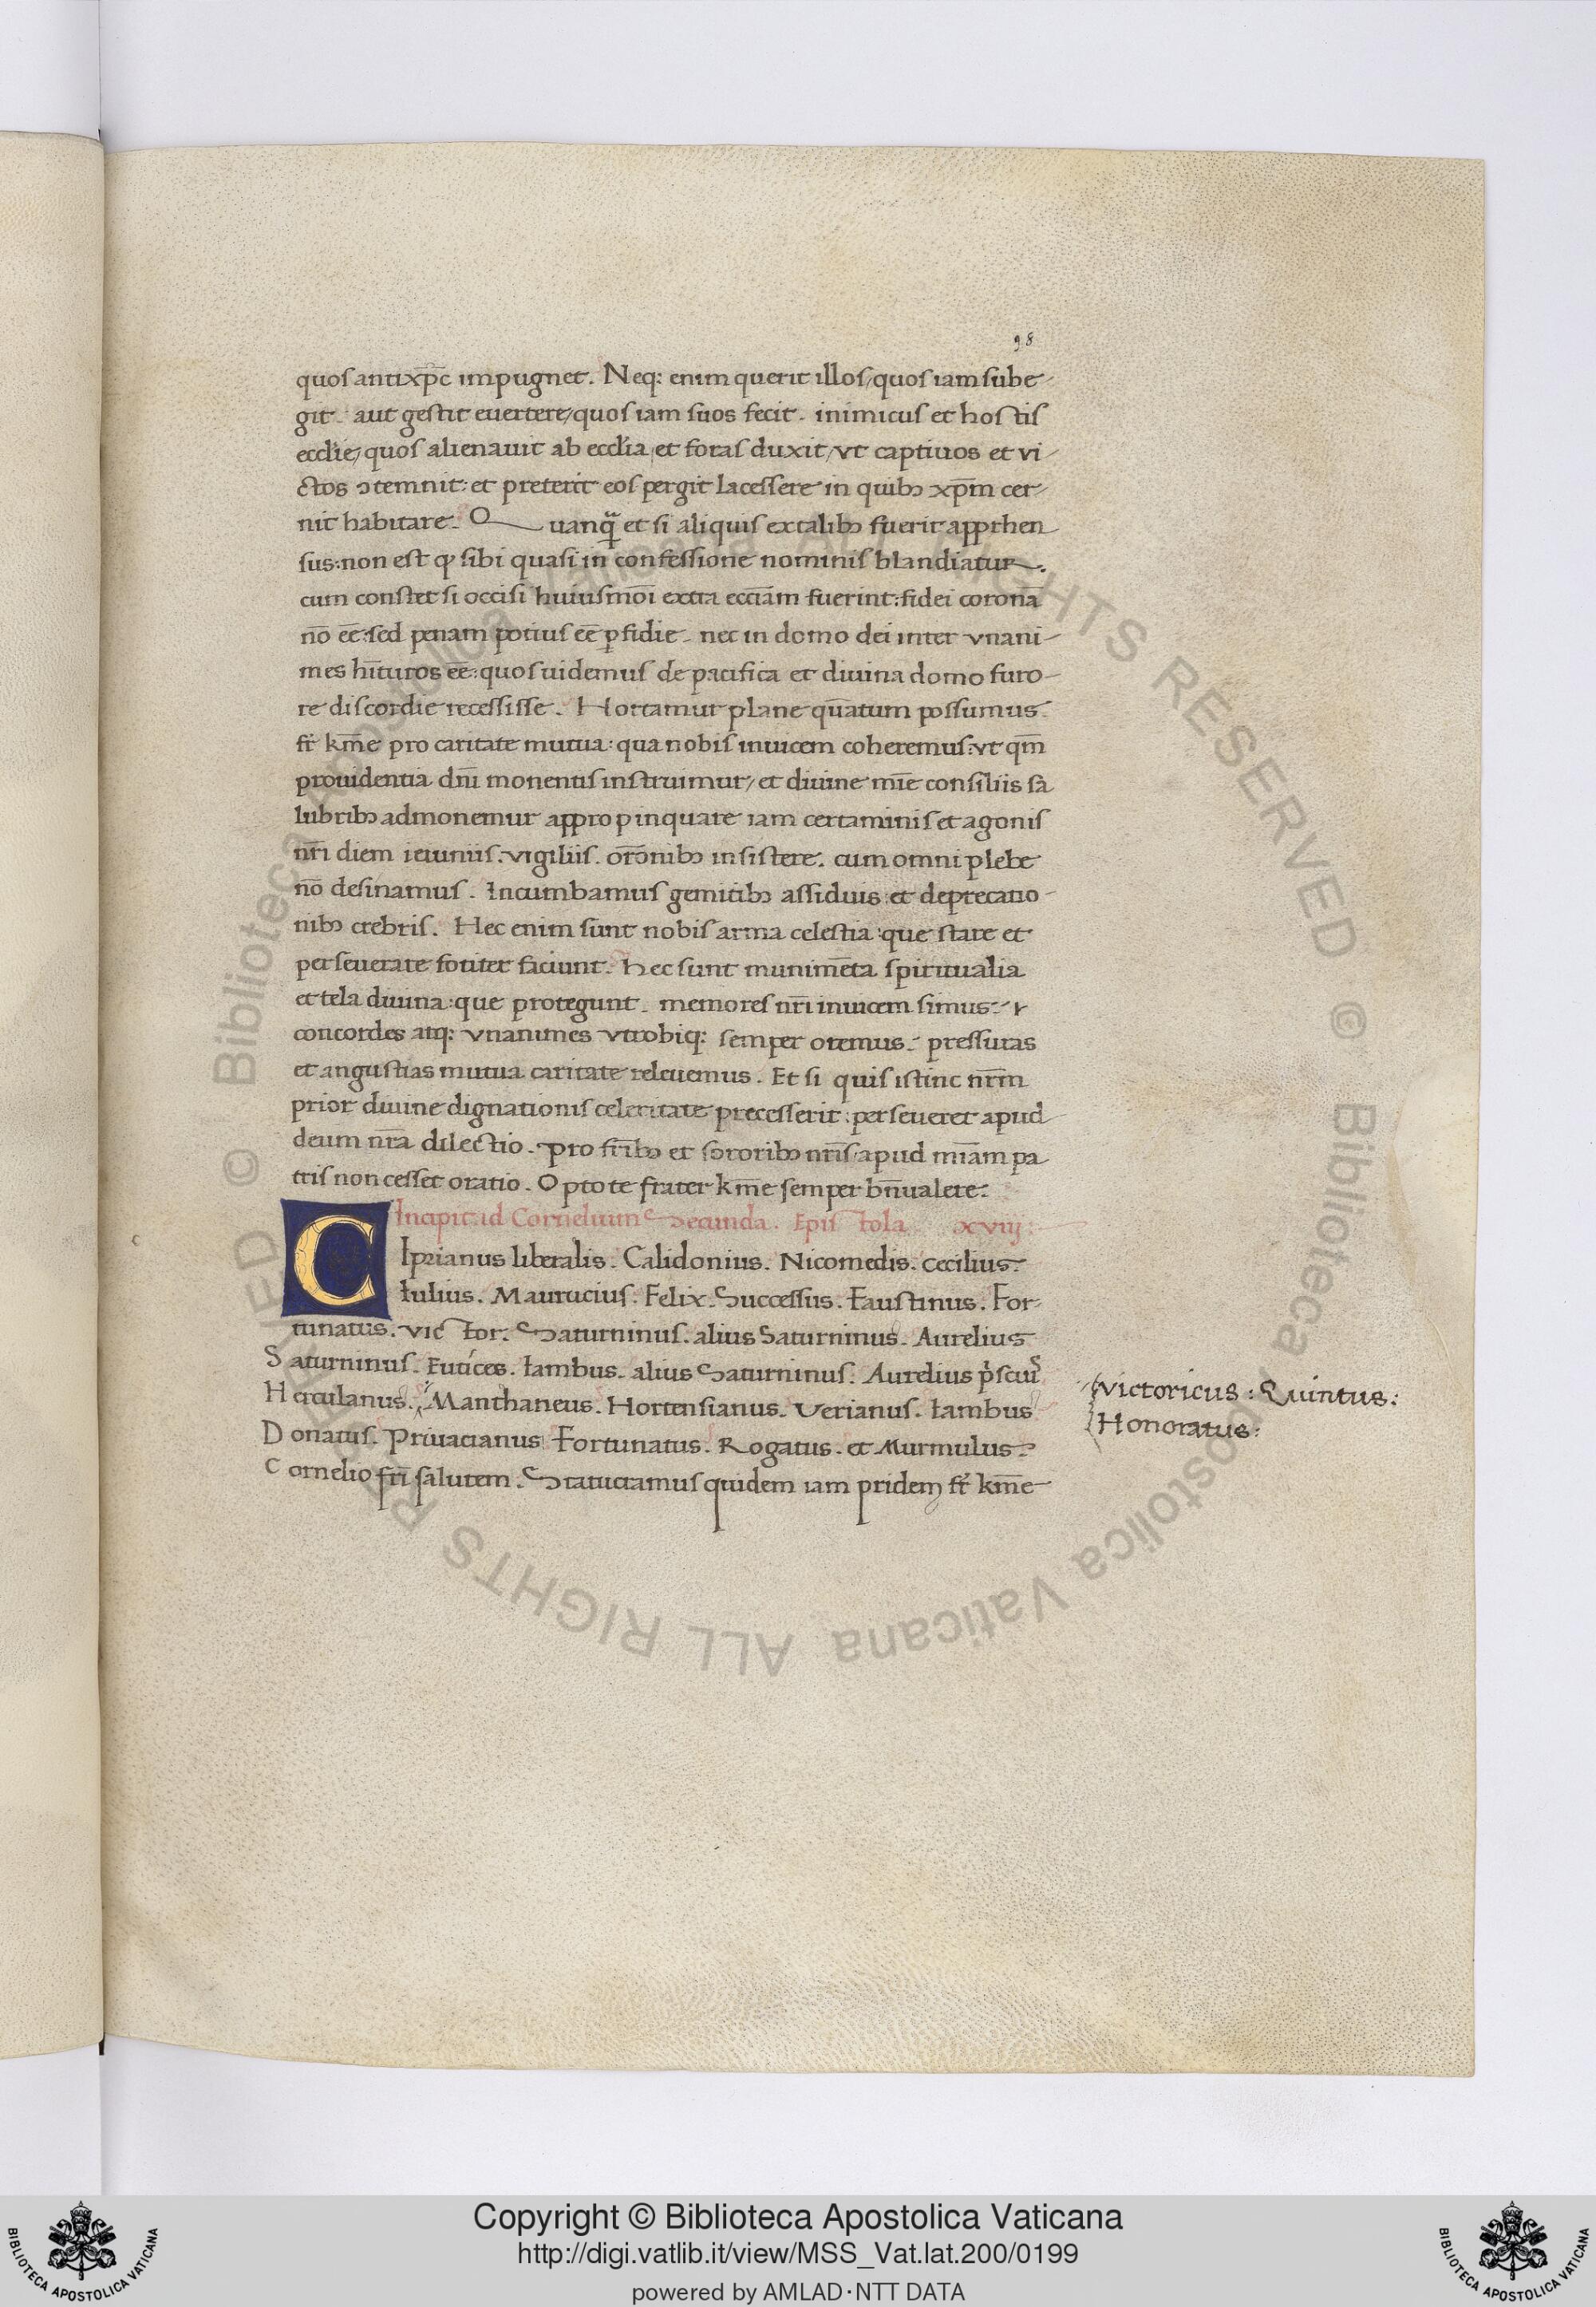 98
quos antixp̄c impugnet. Neq: enim querit illos, quos iam sube-
git. aut gestit euertere, quos iam suos fecit. inimicus et hostis
eccl̄ie, quos alienauit ab eccl̄ia, et foras duxit, vt captiuos et vi-
ctos ɔtemnit: et preterit eos pergit lacessere in quibɔ xp̄m cer-
nit habitare. Quanq̄ et si aliquis ex talibɔ fuerit apprhen
sus: non est qɔ sibi quasi in confessione nominis blandiatur.
cum constet si occisi huiusmōi extra eccīam fuerint: fidei coronā
nō ēe: sed penam potius ēe ꝑfidie. nec in domo dei inter vnani-
mes hīturos ēe: quos uidemus de pacifica et diuina domo furo-
re discordie recessisse. Hortamur plane qūatum possumus
fr̄ km̄e pro caritate mutua: qua nobis inuicem coheremus: vt qm̄
prouidentia dn̄i monentis instruimur, et diuine mīe consiliis sa
lubribɔ admonemur appropinquare iam certaminis et agonis
nr̄i diem ieiuniis. vigiliis. or̄onibɔ insistere. cum omni plebe
nō desinamus. Incumbamus gemitibɔ assiduis et deprecatio-
nibɔ crebris. Hec enim sunt nobis arma celestia: que stare et
perseuerare fortiter faciunt. Hec sunt munimēta spiritualia
et tela diuina: que protegunt. memores nr̄i inuicem simus.
concordes atq: vnanimes vtrobiq: semper oremus. pressuras
et angustias mutua caritate releuemus. Et si quis istinc nr̄m
prior diuine dignationis celeritate precesserit: perseueret apud
deum nr̄a dilectio. pro fr̄ibɔ et sororibɔ nr̄is apud mīam pa
tris non cesset oratio. Opto te frater km̄e semper bn̄ ualere.
Incipit ad Cornelium Secunda. Epistola xviij
CIprianus liberalis. Calidonius. Nicomedis. cecilius.
Iulius. Maurucius. Felix. Successus. Faustinus. For-
tunatus. victor. Saturninus. alius Saturninus. Aurelius
Saturninus. Eutices. Iambus. alius Saturninus. Aurelius p̄scus
Herculanus. Manthaneus. Hortensianus. Verianus. Iambus
Donatus. Priuacianus Fortunatus. Rogatus. et Murmulus.
Cornelio fr̄i salutem. Statueramus quidem iam pridem fr̄ km̄e
victoricus: Quintus:
Honoratus:
© Biblioteca Apostolica Vaticana ALL RIGHTS RESERVED © Biblioteca Apostolica Vaticana ALL RIGHTS RESERVED
Copyright © Biblioteca Apostolica Vaticana
http://digi.vatlib.it/view/MSS_Vat.lat.200/0199
powered by AMLAD·NTT DATA
BIBLIOTECA APOSTOLICA VATICANA
BIBLIOTECA APOSTOLICA VATICANA